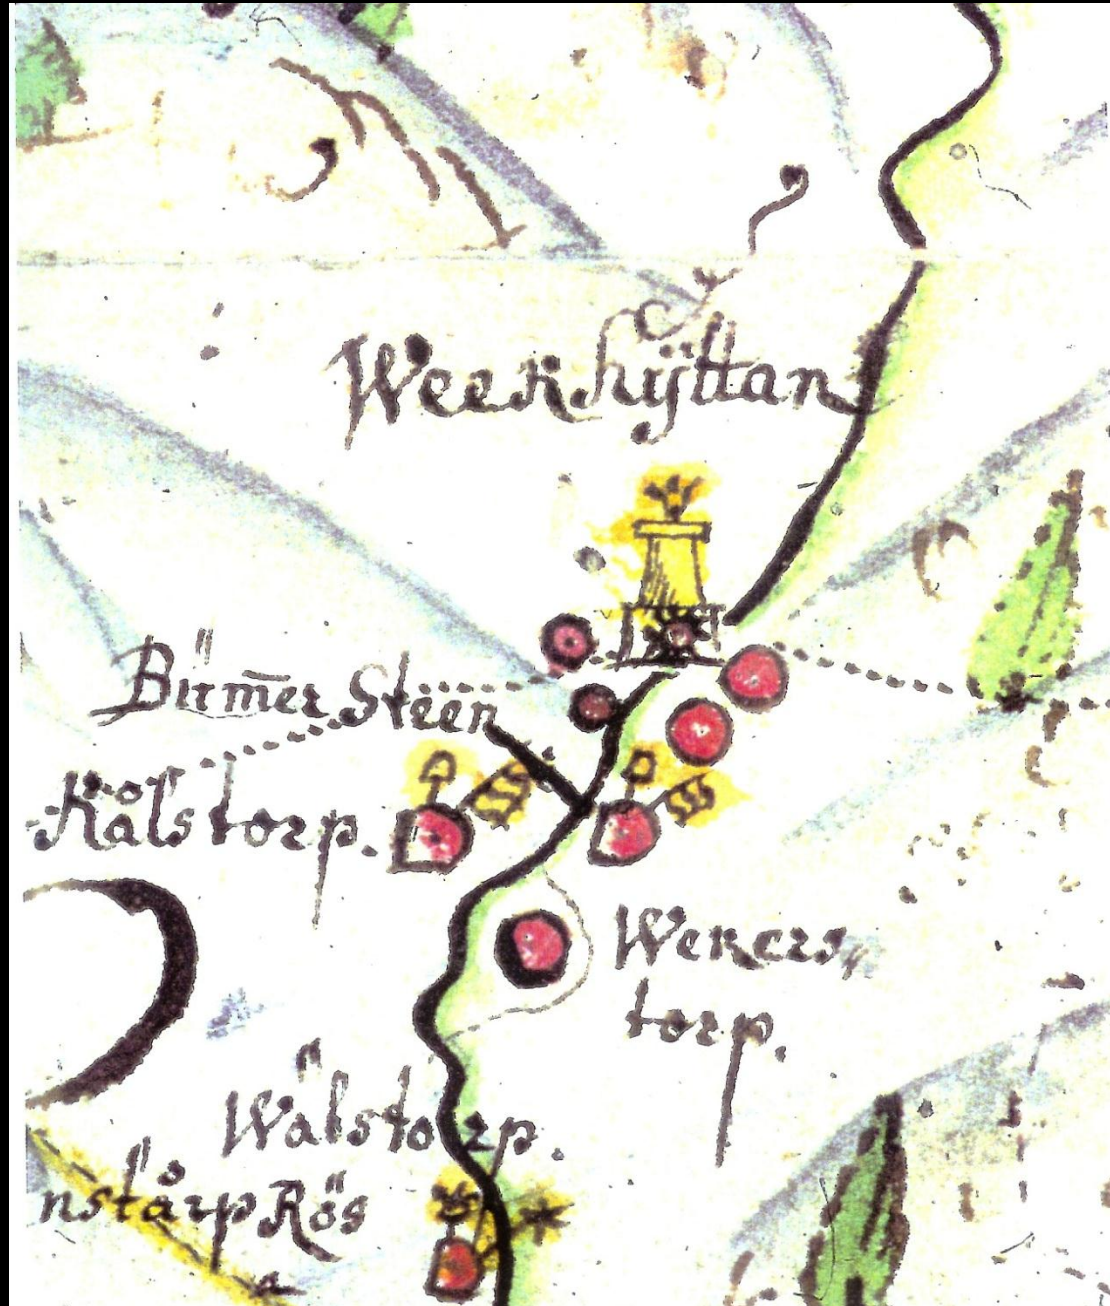 Weekhÿttan
Bürm̄er Stëën
Kålstorp.
Wekers
torp.
Wälstorp.
nstårp Rös